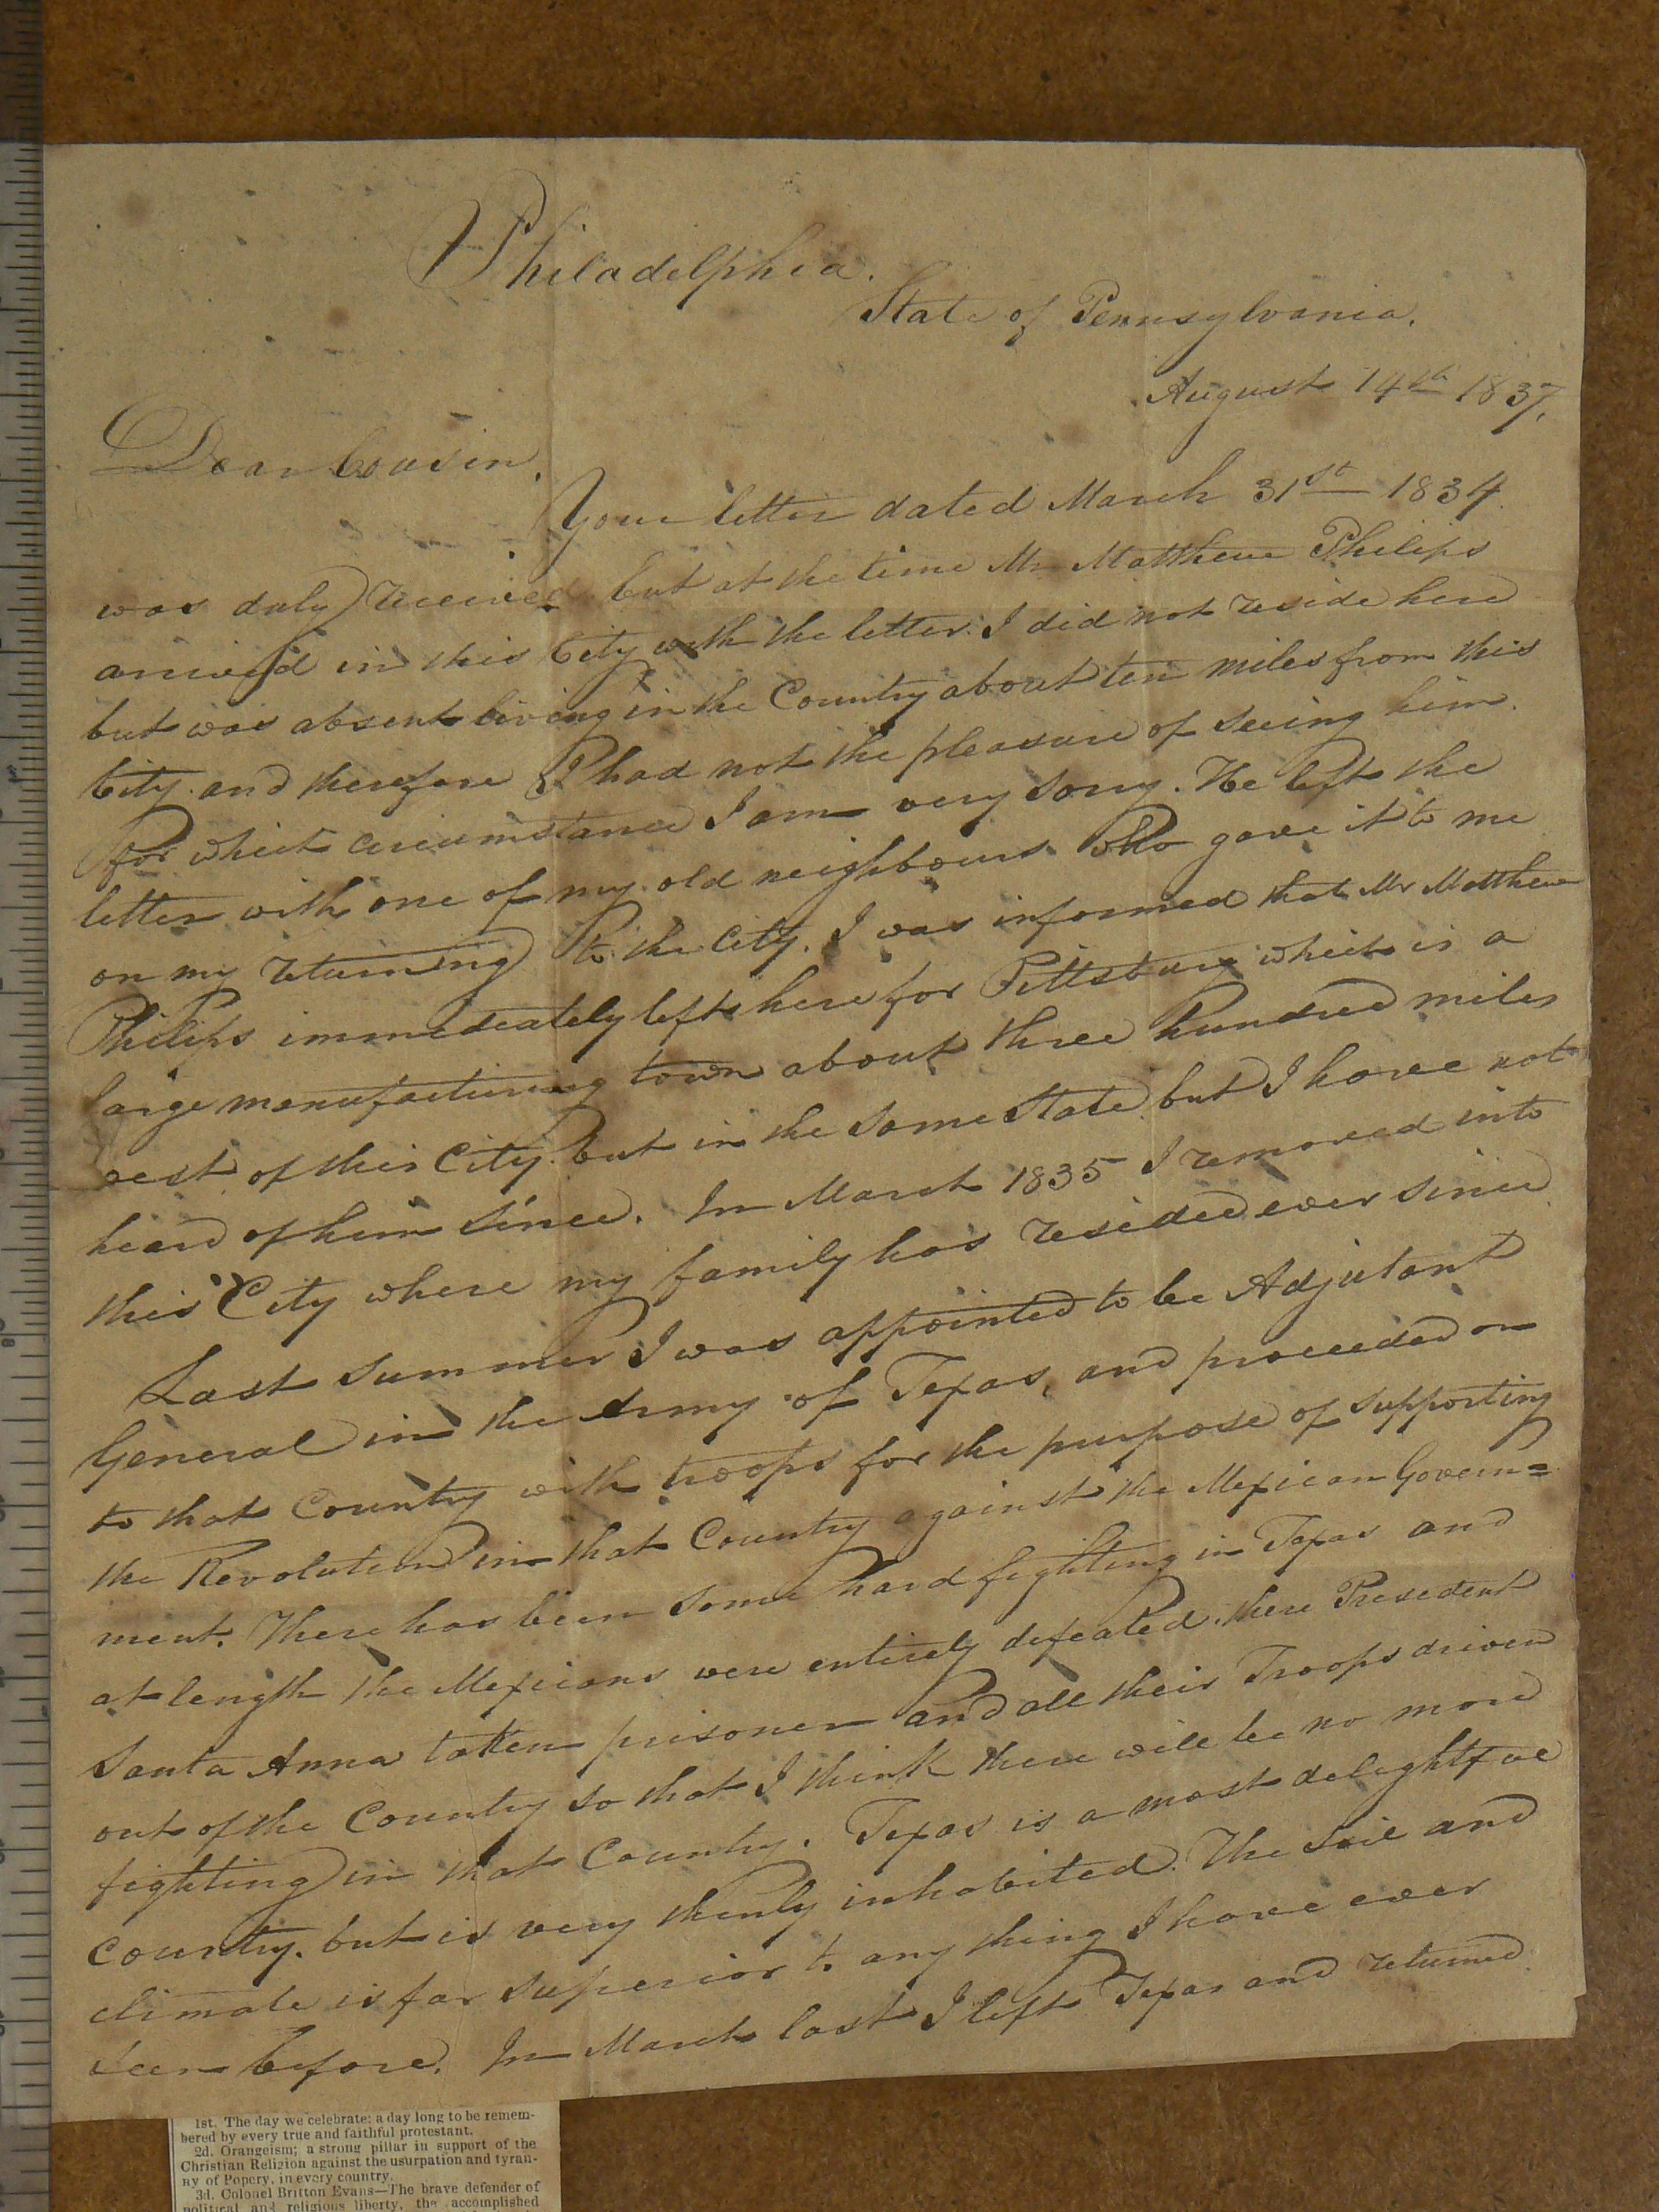 Philadelphia.
State of Pennsylvania.
August 14th 1837.
Dear Cousin.
Your letter dated March 31st 1834.
was duly received but at the time Mr Matthew Philips
arrived in this City with the letter. I did not reside here
but was absent living in the Country about ten miles from this
City. and therefore I had not the pleasure of seeing him.
for which circumstance I am very sorry. He left the
letter with one of my old neighbours who gave it to me
on my returning to the City. I was informed that Mr Matthew
Philips immediately left here for Pittsburg which is a
large manufacturing town about three hundred miles
west of this City. but in the same State. but I have not
heard of him since. In March 1835 I removed into
this City where my family has resided ever since
Last summer I was appointed to be Adjutant
General in the Army of Texas, and proceeded on
to that Country with troops for the purpose of supporting
the Revolution in that Country against the Mexican Govern=
ment. There has been some hard fighting in Texas and
at length the Mexicans were entirely defeated. there President
Santa Anna taken prisoner and all their Troops driven
out of the Country so that I think there will be no more
fighting in that Country. Texas is a most delightful
country. but is very thinly inhabited. The Soil and
climate is far superior to any thing I have ever
seen before. In March last I left Texas and returned
1st. The day we celebrate; a day long to be remem-
bered by every true and faithful protestant.
2d. Orangeism; a strong pillar in support of the
Christian Religion against the usurpation and tyran-
ny of Popery, in every country.
3d. Colonel Britton Evans—The brave defender of
political and religious liberty, the accomplished